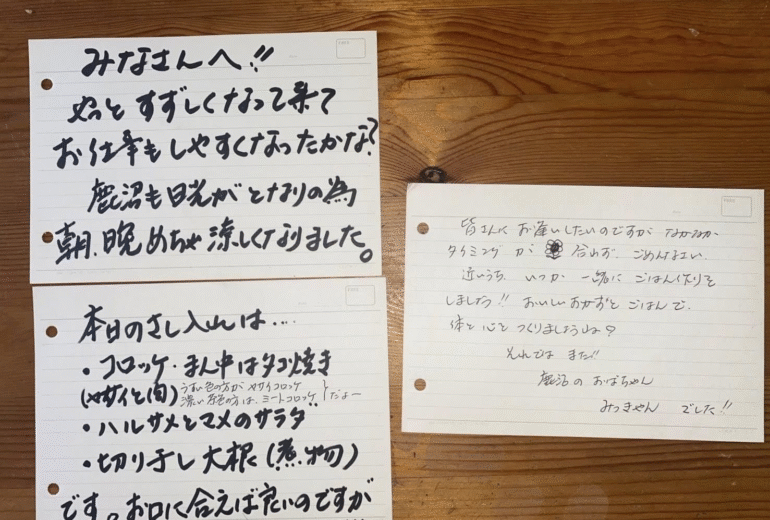 みなさんへ!!
やっとすずしくなって来て
お仕事もしやすくなったかな?
鹿沼も日光がとなりの為
朝、晩めちゃ涼しくなりました。
本日のさし入れは...
・コロッケ・まん中はタコ焼き
(ヤサイと肉)うすい色の方がヤサイコロッケ
濃い茶色の方は、ミートコロッケ だよー
・ハルサメとマメのサラダ
・切り干し大根(煮物)
です。お口に合えば良いのですが
皆さんに お逢いしたいのですが なかなか
タイミング が 合わず、ごめんなさい。
近いうち、いつか 一緒に ごはん作りを
しましょう!! おいしいおかずと ごはんで、
体と心を つくりましょうね?
それでは また!!
鹿沼の おばちゃん
みっきゃん でした!!